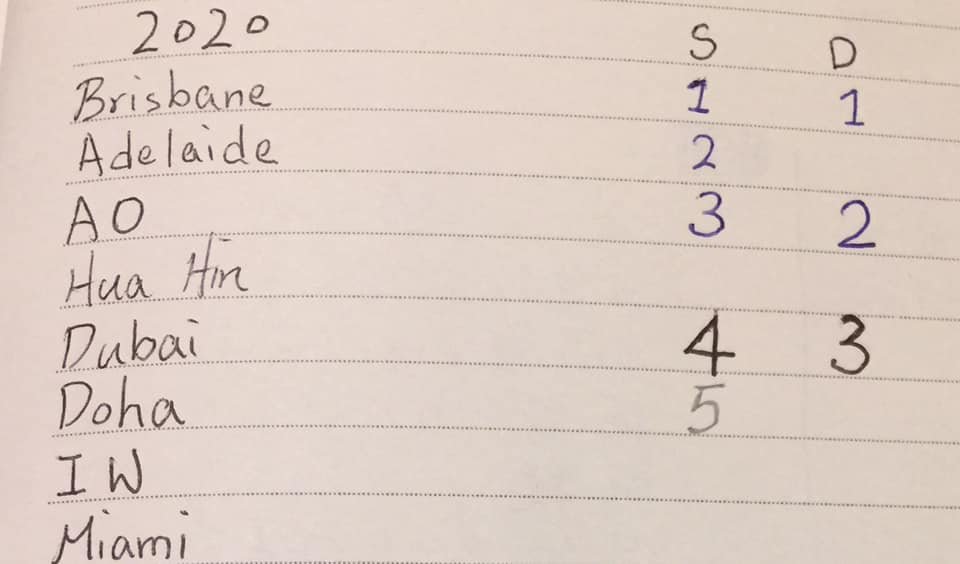 2020 S D
Brisbane 1 1
Adelaide 2
AO 3 2
Hua Hin
Dubai 4 3
Doha 5
IW
Miami